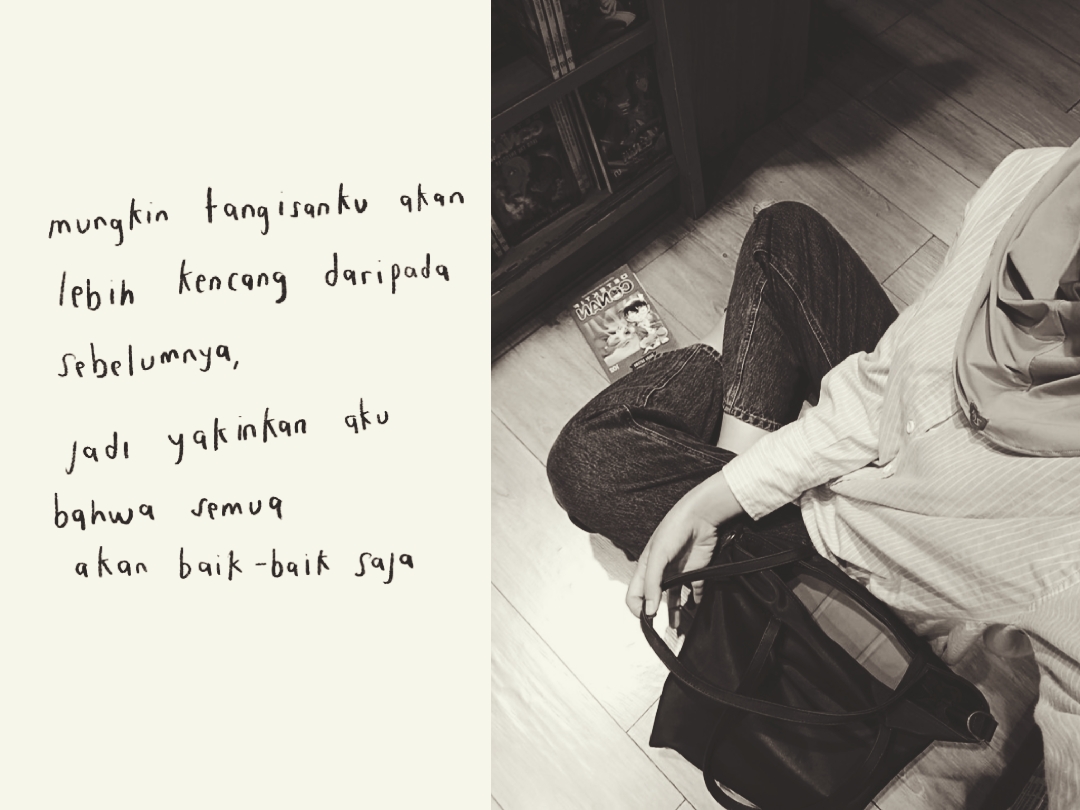 mungkin tangisanku akan
lebih kencang daripada
sebelumnya,
jadi yakinkan aku
bahwa semua
akan baik-baik saja
DETEKTIF
CONAN